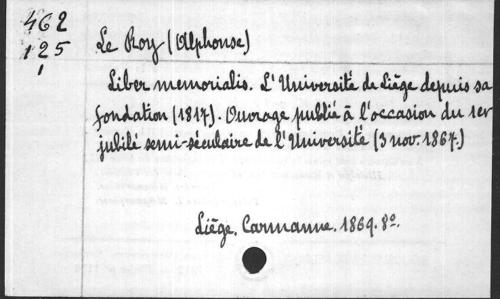 462
125
1
Le Roy (Alphonse)
Liber memorialis. L'Université de Liége depuis sa
fondation (1817). Ouvrage publié à l'occasion du 1er
jubilé semi-séculaire de l'Université (3 nov. 1867.)
Liége. Carmanne. 1869. 8º.